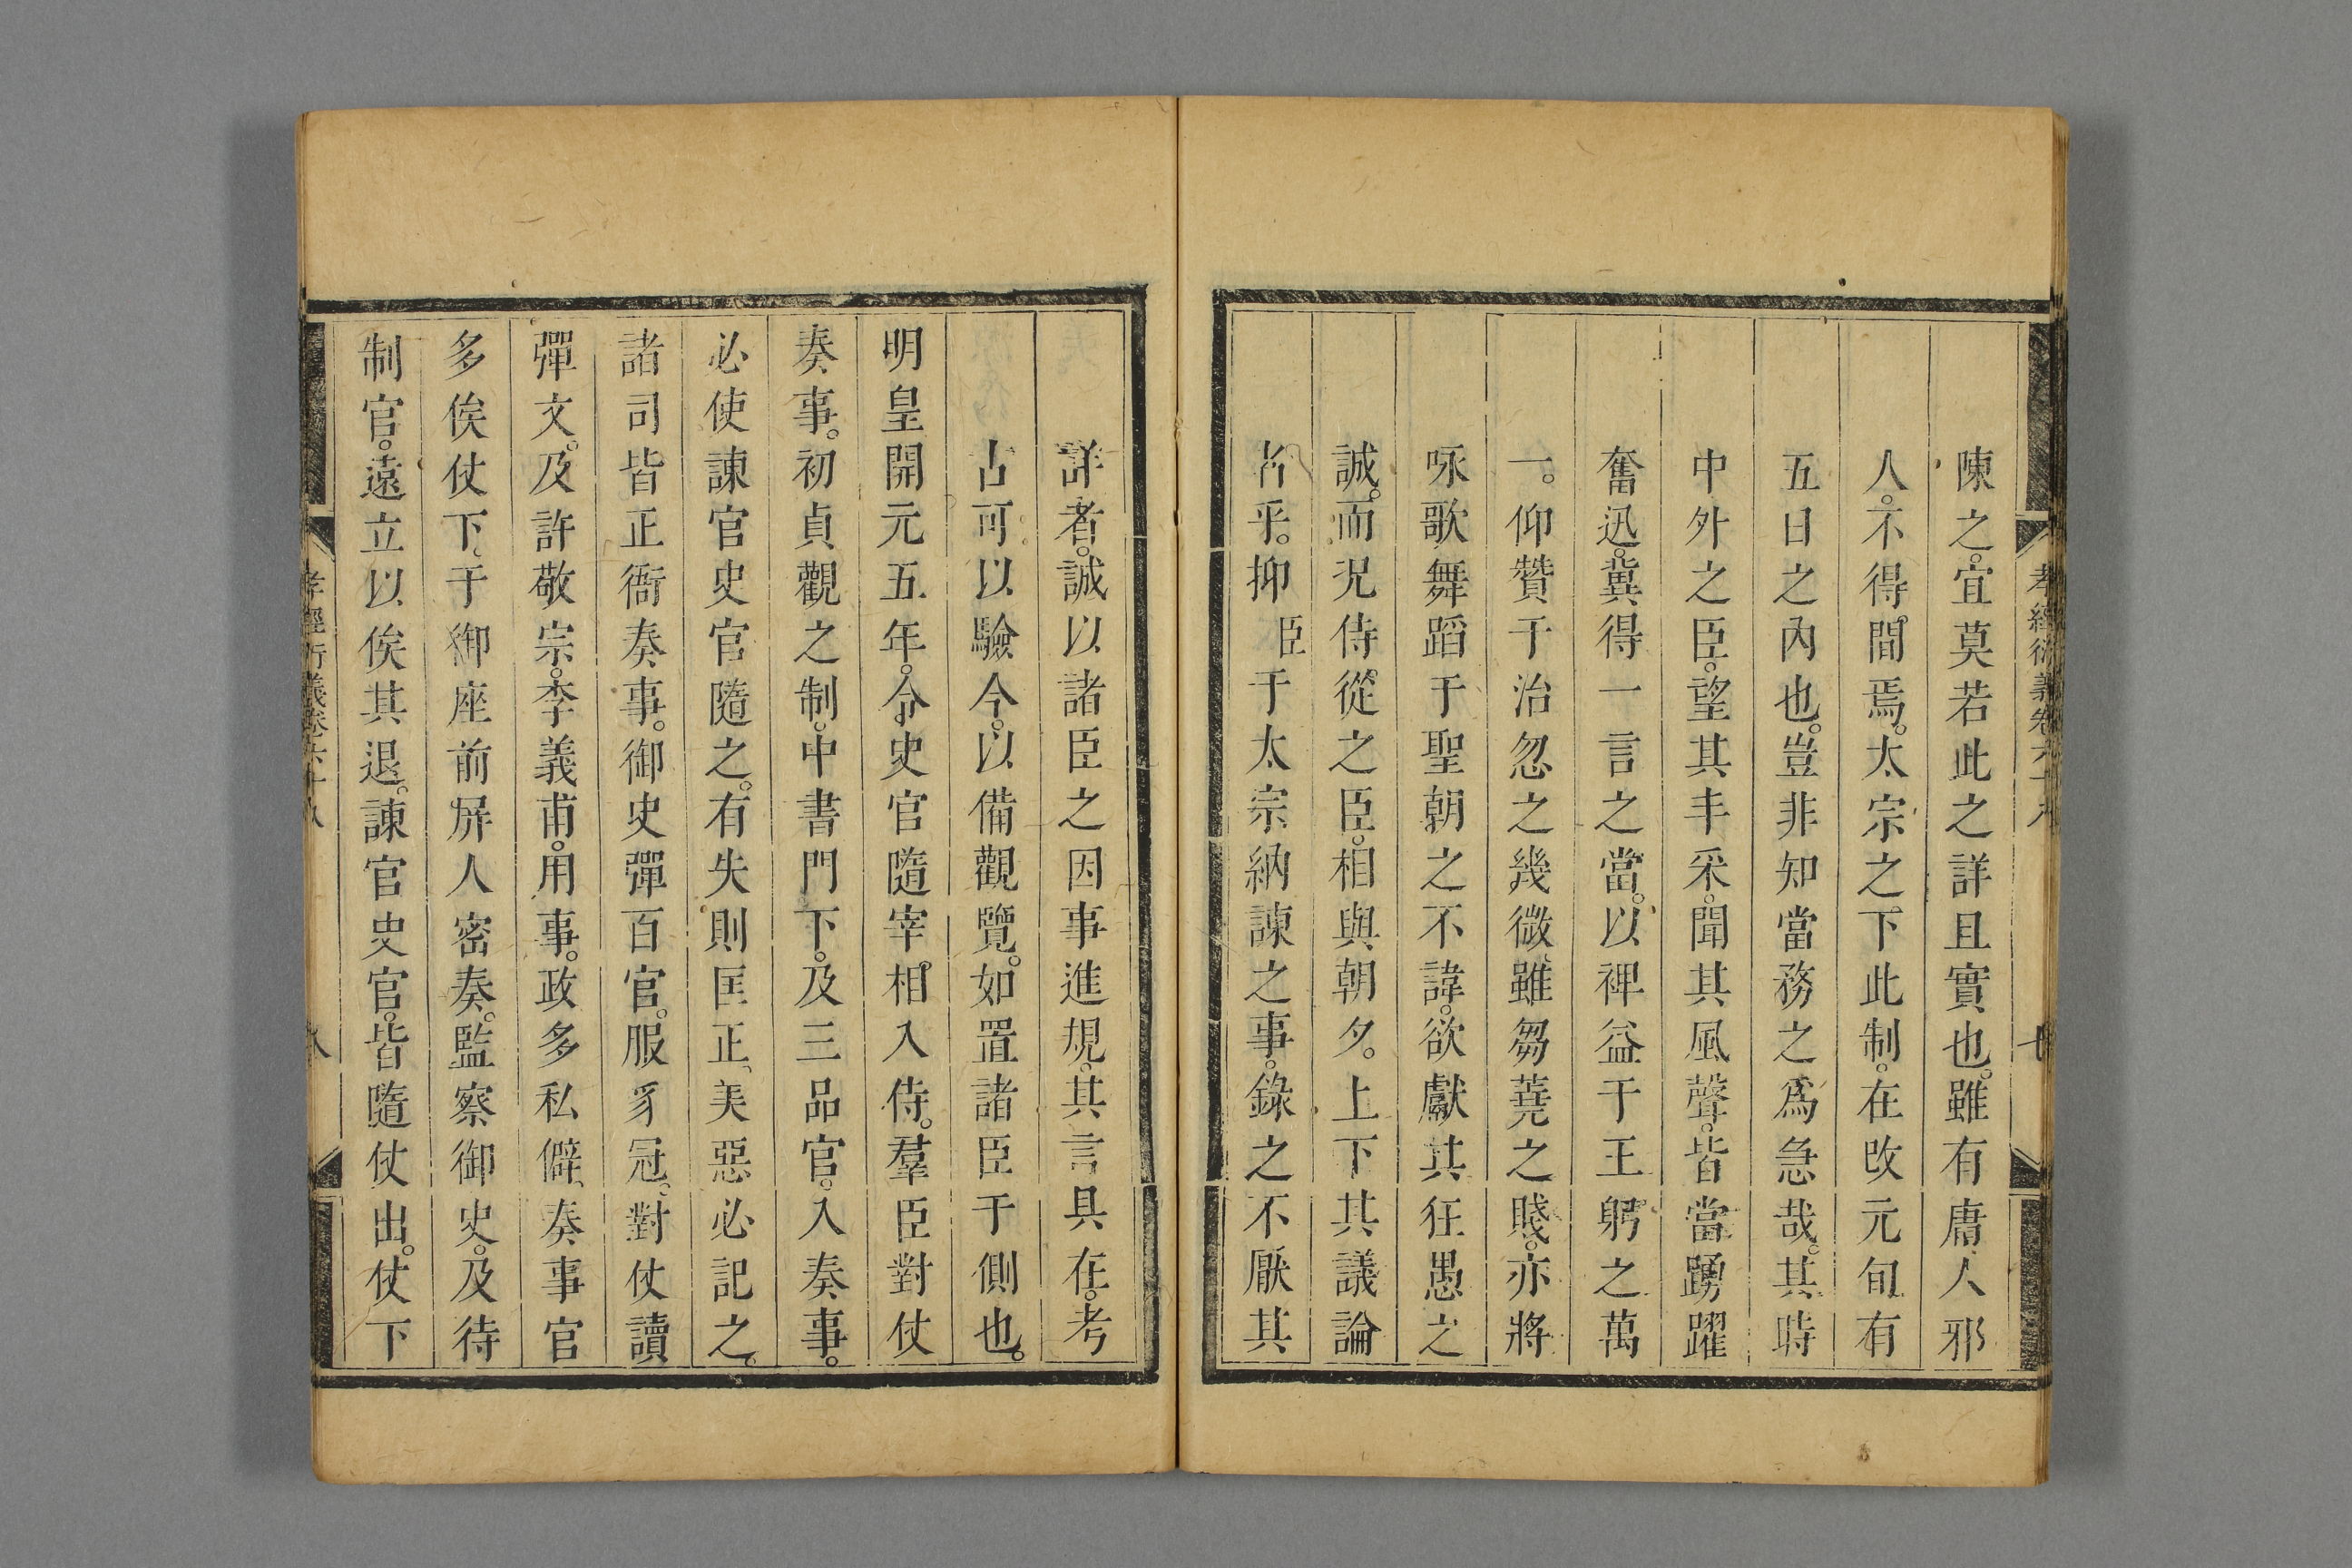 孝經衍義卷六十八
七
陳之。宜莫若此之詳且實也。雖有庸人邪
人。不得間焉。太宗之下此制。在改元旬有
五日之內也。豈非知當務之為急哉。其時
中外之臣。望其丰采。聞其風聲。皆當踴躍
奮迅。冀得一言之當。以裨益于王躬之萬
一。仰贊于治忽之幾微。雖芻蕘之賤。亦將
咏歌舞蹈于聖朝之不諱。欲獻其狂愚之
誠。而況侍從之臣。相與朝夕。上下其議論
者乎。抑臣于太宗納諫之事。錄之不厭其
詳者。誠以諸臣之因事進規。其言具在。考
古可以驗今。以備觀覽。如置諸臣于側也。
明皇開元五年。令史官隨宰相入侍。羣臣對仗
奏事。初貞觀之制。中書門下。及三品官。入奏事。
必使諫官史官隨之。有失則匡正、美惡必記之。
諸司皆正衙奏事。御史彈百官。服豸冠。對仗讀
彈文。及許敬宗。李義甫。用事。政多私僻、奏事官
多俟仗下、于御座前屏人密奏。監察御史。及待
制官。遠立以俟其退。諫官史官。皆隨仗出。仗下
孝經衍義卷六十八
八